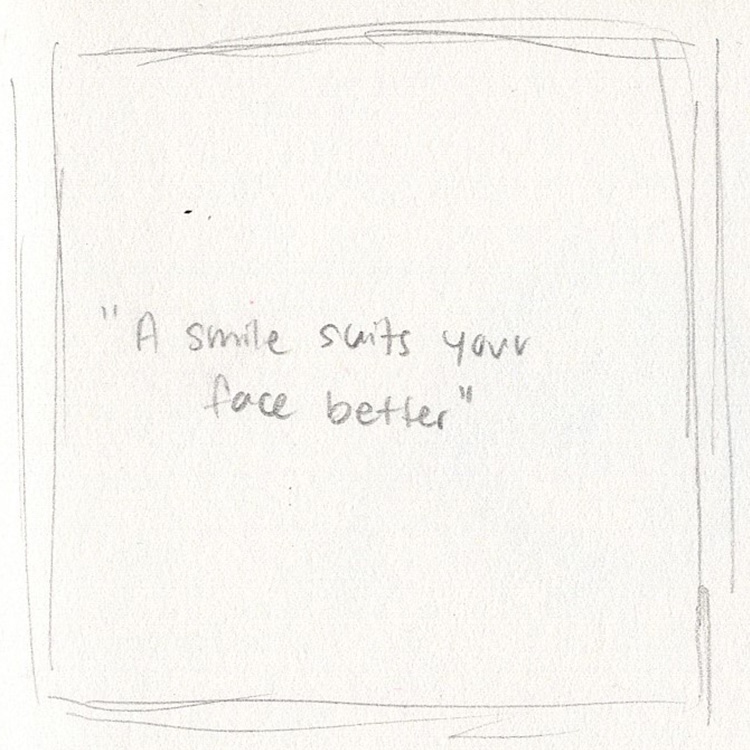 "A smile suits your
face better"